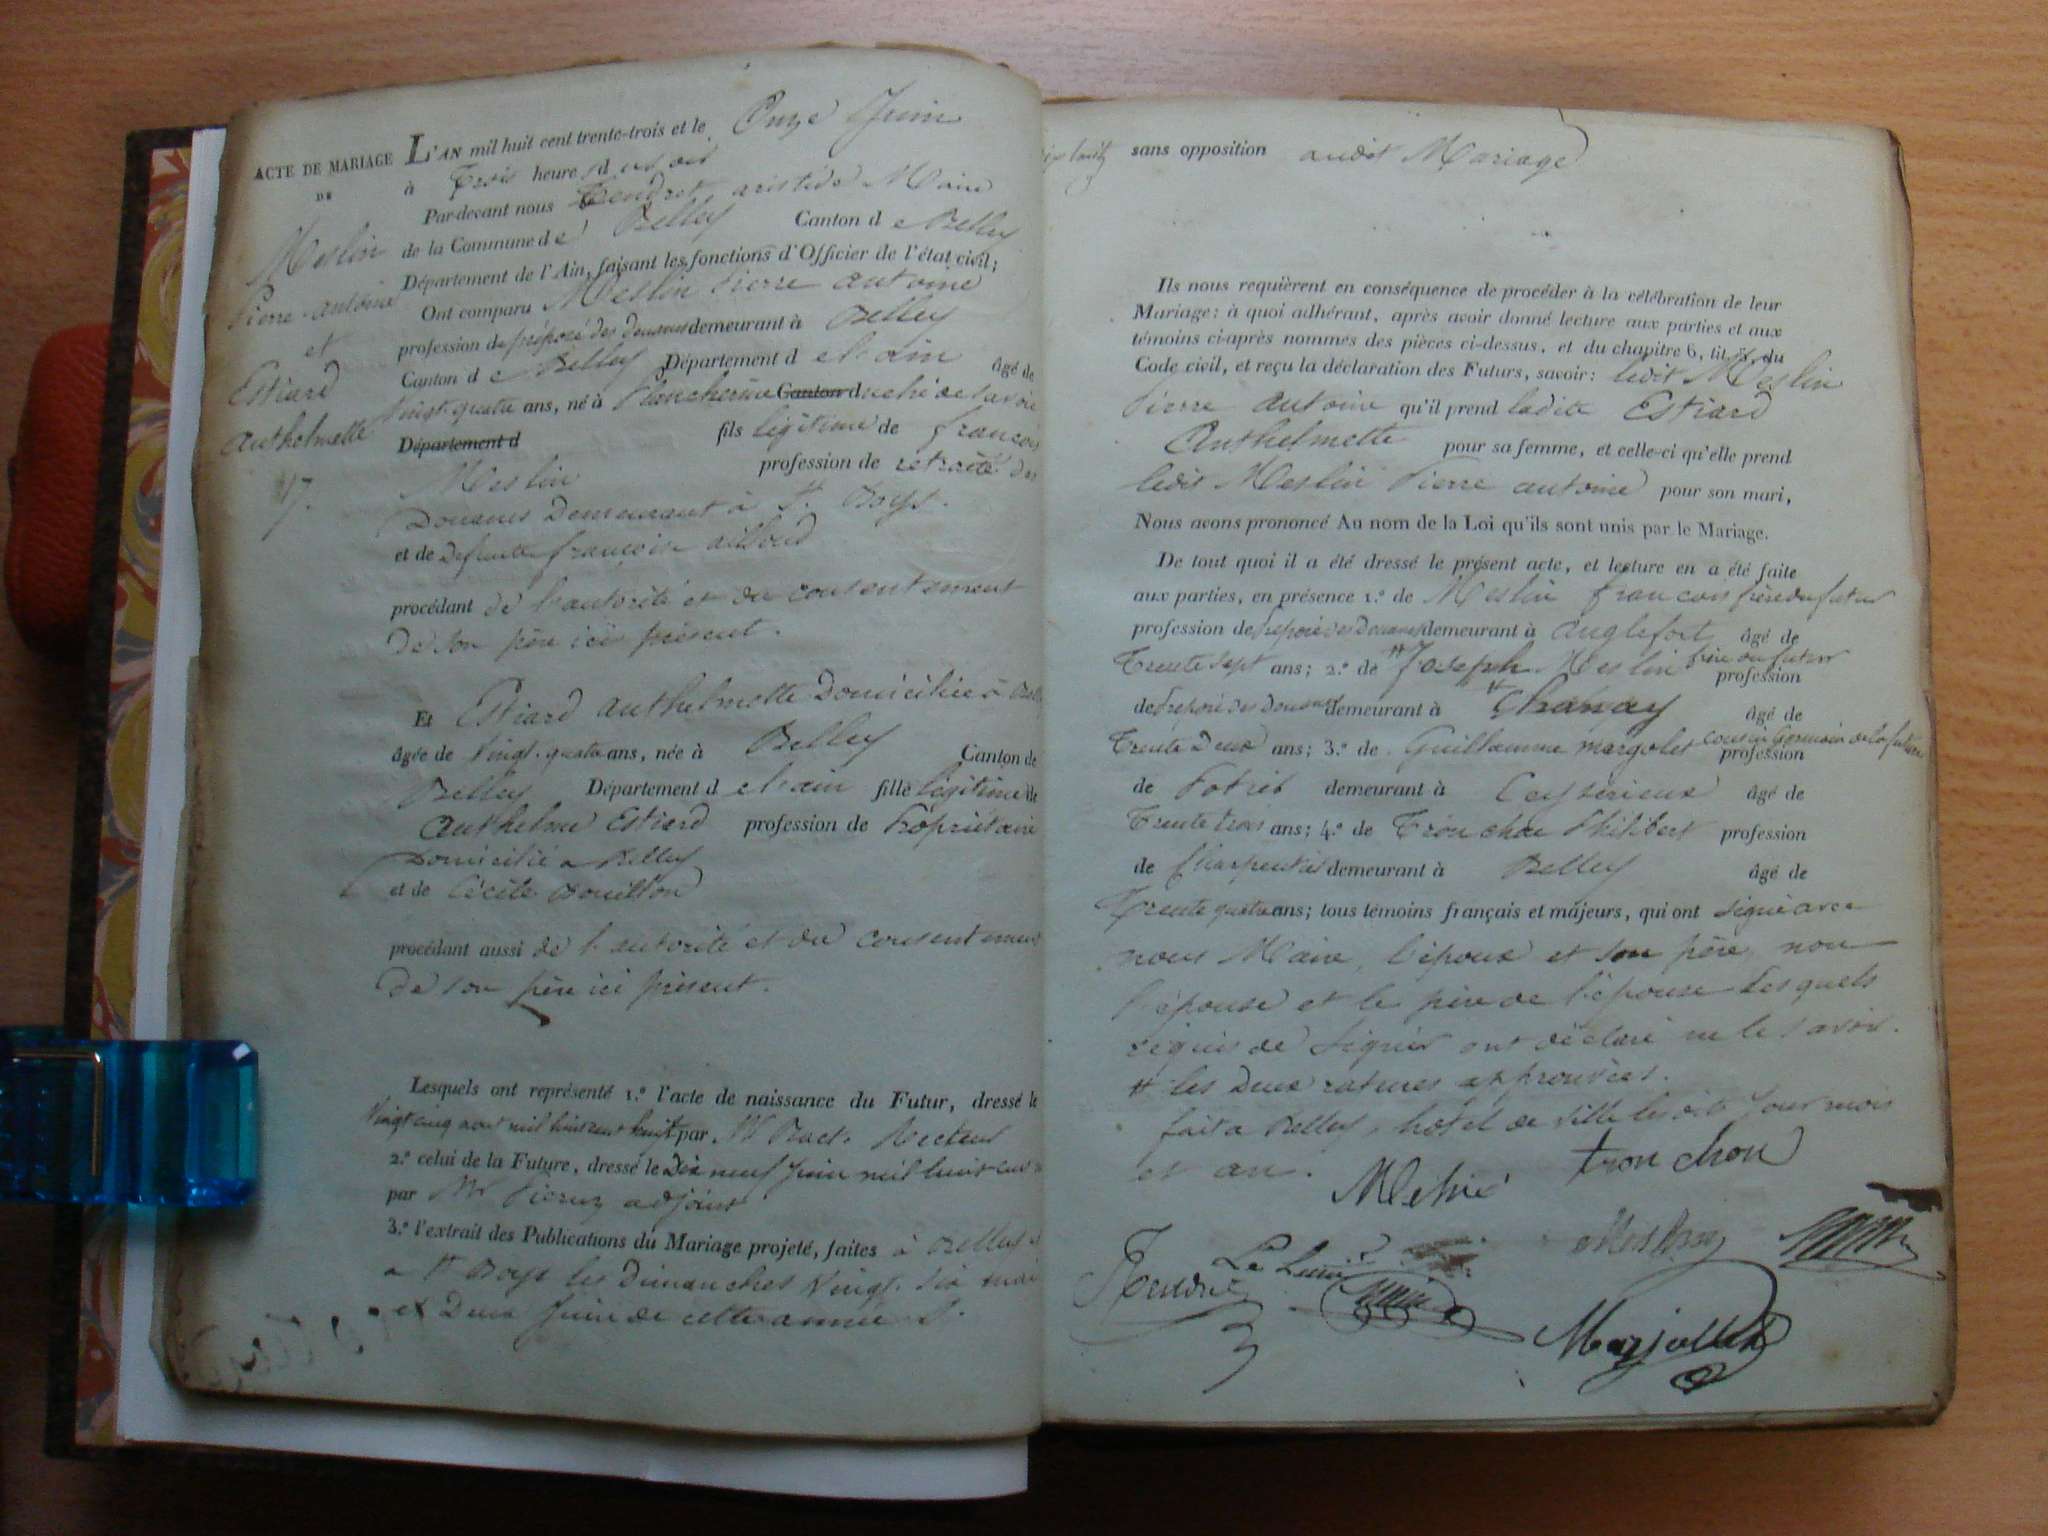 ACTE DE MARIAGE
DE
Meslin
Pierre-antoine
et
Estiard
Anthelmette
17.
L'AN mil huit cent trente-trois et le Onze Juin
à Trois heures du soir
Par-devant nous Tendret aristide Maire
de la Commune de Belley Canton de Belley
Département de l'Ain, faisant les fonctions d'Officier de l'état civil;
Ont comparu Meslin Pierre antoine
profession de préposé des douanes demeurant à Belley
Canton de Belley Département de l'ain âgé de
vingt-quatre ans, né à Plancherine Canton duché de savoie
Département d fils légitime de francois
Meslin profession de retraité des
Douanes Demeurant à St. Boys.
et de Defunte françoise
procédant de l'autorité et du consentement
de son père ici présent.
Et Estiard anthelmette Domiciliée à Belley
âgée de vingt-quatre ans, née à Belley Canton de
Belley Département de l'ain fille légitime de
Anthelme Estiard profession de Propriétaire
Domicilié a Belley
et de Cécile Bouillon
procédant aussi de l'autorité et du consentement
de son père ici présent.
Lesquels ont représenté 1.º l'acte de naissance du Futur, dressé le
vingt cinq aout mil huit cent huit par Mr Recteur
2.º celui de la Future, dressé le Dix neuf Juin mil huit cent
par Mr adjoint
3.º l'extrait des Publications du Mariage projeté, faites à Belley et
a St Boys les Dimanches vingt-six mai
et Deux Juin de cette année
sans opposition audit Mariage
Ils nous requièrent en conséquence de procéder à la célébration de leur
Mariage: à quoi adhérant, après avoir donné lecture aux parties et aux
témoins ci-après nommés des pièces ci-dessus, et du chapitre 6, tit. 5, du
Code civil, et reçu la déclaration des Futurs, savoir: ledit Meslin
Pierre antoine qu'il prend ladite Estiard
Anthelmette pour sa femme, et celle-ci qu'elle prend
ledit Meslin Pierre antoine pour son mari,
Nous avons prononcé Au nom de la Loi qu'ils sont unis par le Mariage.
De tout quoi il a été dressé le présent acte, et lecture en a été faite
aux parties, en présence 1.º de Meslin francois frère du futur
profession de préposé des douanes demeurant à anglefort âgé de
Trente sept ans; 2.º de # Joseph Meslin frère du futur profession
de Préposé des Douanes demeurant à # Chanay âgé de
Trente Deux ans; 3.º de Guillaume margolet cousin Germain de la future profession
de demeurant à Ceyserieux âgé de
Trente trois ans; 4.º de Tronchon Philibert profession
de Charpentier demeurant à Belley âgé de
Trente quatre ans; tous témoins français et majeurs, qui ont signé avec
nous Maire, l'époux et son père, non
l'épouse et le père de l'épouse Lesquels
réquis de signer ont déclaré ne le savoir.
# les Deux ratures approuvées.
fait a Belley, hotel de ville les dits jour mois
et an.
tronchon
Tendret